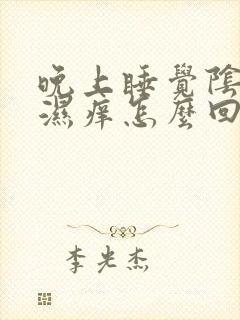 晚上睡覺陰
濕癢怎麼回
李光杰